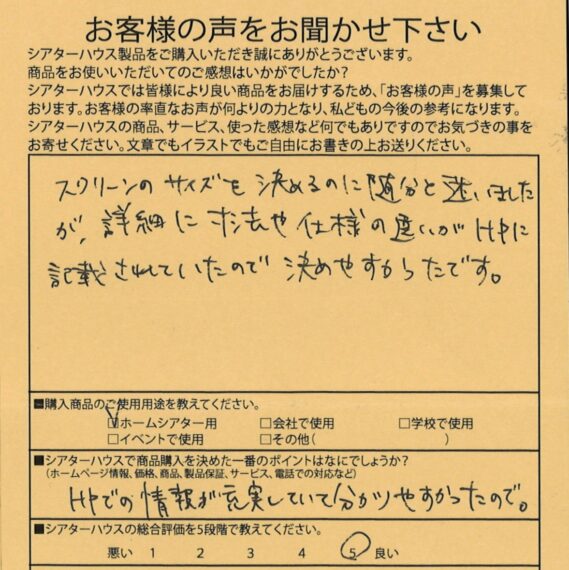 お客様の声をお聞かせ下さい
シアターハウス製品をご購入いただき誠にありがとうございます。
商品をお使いいただいてのご感想はいかがでしたか?
シアターハウスでは皆様により良い商品をお届けするため、「お客様の声」を募集して
おります。お客様の率直なお声が何よりの力となり、私どもの今後の参考になります。
シアターハウスの商品、サービス、使った感想など何でもありですのでお気づきの事を
お寄せください。文章でもイラストでもご自由にお書きの上お送りください。
スクリーンのサイズを決めるのに随分と迷いました
が、詳細に寸法や仕様の違いがHPに
記載されていたので決めやすかったです。
■購入商品のご使用用途を教えてください。
☑ホームシアター用 □会社で使用 □学校で使用
□イベントで使用 □その他( )
■シアターハウスで商品購入を決めた一番のポイントはなにでしょうか?
(ホームページ情報、価格、商品、製品保証、サービス、電話での対応など)
HPでの情報が充実していて分かりやすかったので。
■シアターハウスの総合評価を5段階で教えてください。
悪い 1 2 3 4 5 良い